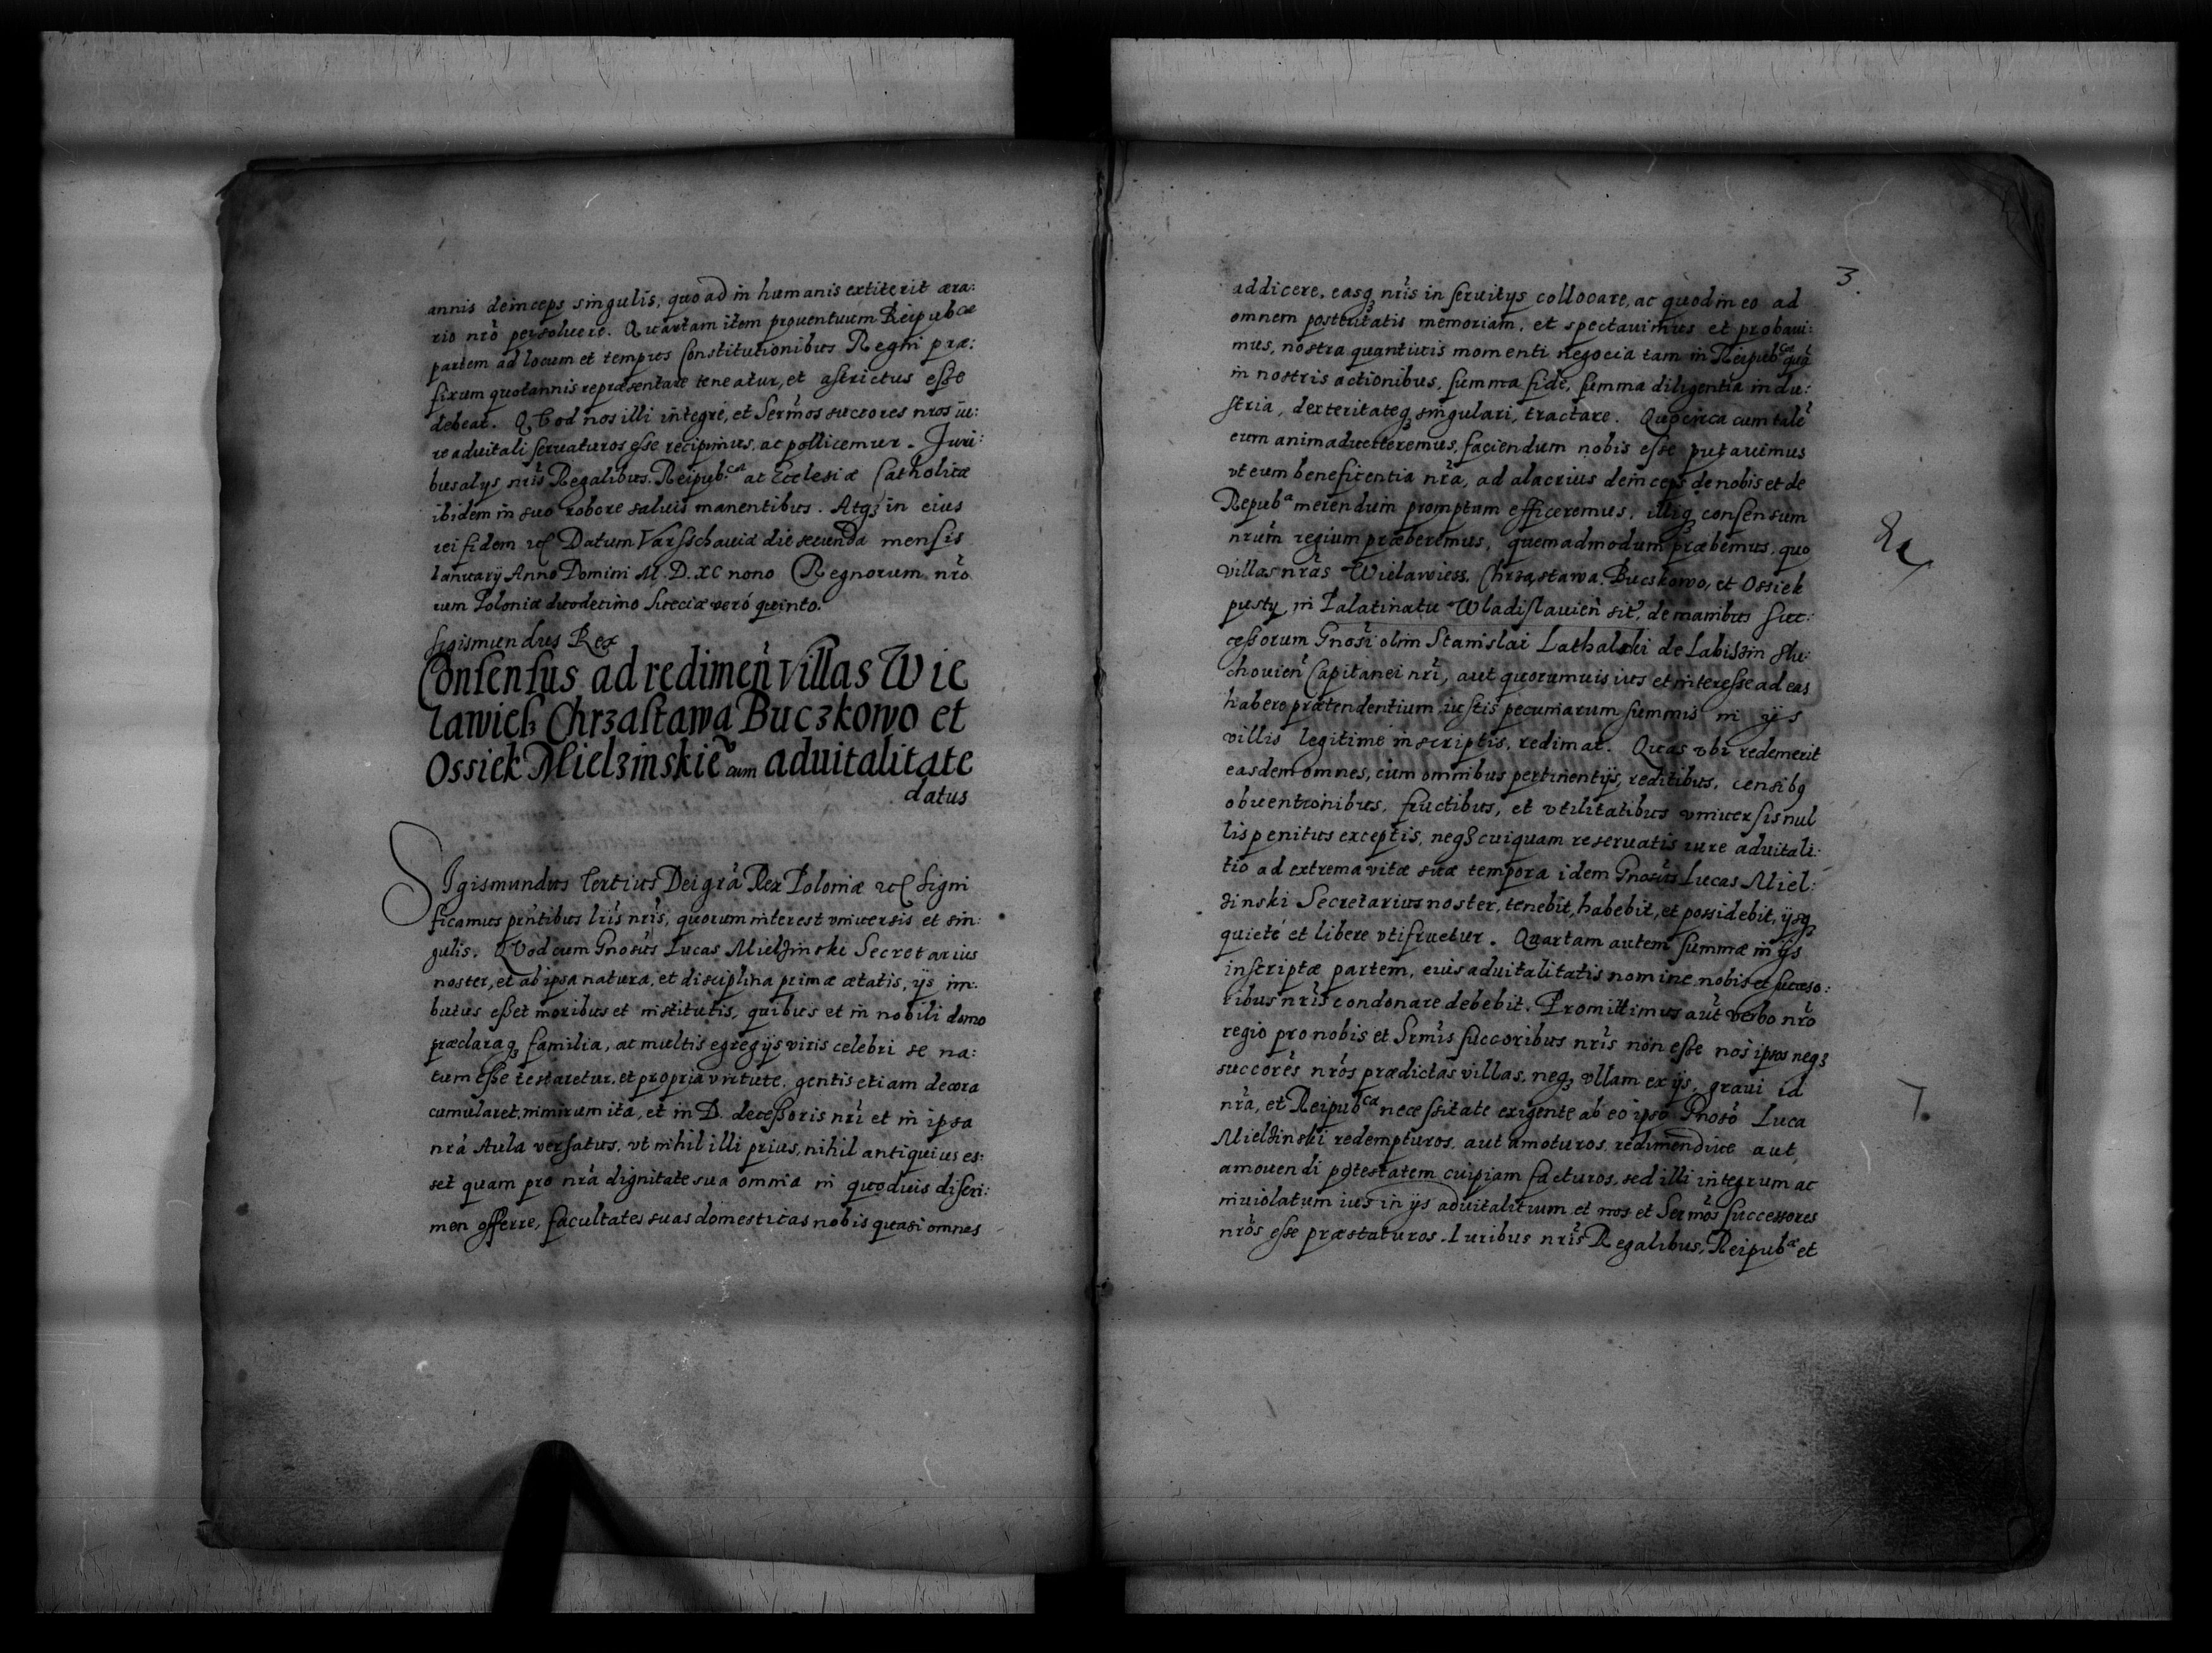 annis deinceps singulis, quoad in humanis extiterit æra:
rio nrō persoluere. Quartam item prouentuum Reipubcæ
partem ad locum et tempus Constitutionibus Regni præ:
fixum quotannis repræsentare teneatur, et astrictus esse
debeat. QVod nos illi integrè, et Sermōs succores nros iu:
re aduitali seruaturos esse recipimus, ac pollicemur. Iuri:
bus alys nris Regalibus. Reipub:cæ ac Ecclesiæ Catholicæ
ibidem in suo robore saluis manentibus. Atqꝫ in eius
rei fidem etc Datum Varsschauiæ die secunda mensis
Ianuarÿ Anno Domini M.D.XC nono Regnorum nrō
rum Poloniæ duodecimo Sueciæ verò quinto.
Sigismundus Rex
Consensus ad redimeñ Villas Wie
lawiesz Chrzastawa Buczkowo et
Ossiek Mielzinskiē cum aduitalitate
datus
SIgismundus Tertius Dei grā Rex Poloniæ etc Signi
ficamus pñtibus lris nris, quorum interest vniuersis et sin:
gulis. QVod cum Gnosus Lucas Mielzinski Secretarius
noster, et ab ipsa natura, et disciplina primæ ætatis, ijs im:
butus esset moribus et institutis, quibus et in nobili domo
præclaraqꝫ familia, ac multis egregijs viris celebri se na:
tum esse testaretur, et propria virtute, gentis etiam decora
cumularet, nimirum ita, et in D. decessoris nri et in ipsa
nrā Aula versatus, vt nihil illi prius, nihil antiquius es:
set quam pro nrā dignitate sua omnia in quoduis discri:
men offerre, facultates suas domesticas nobis quasi omnes
3.
addicere, easqꝫ nris in seruitijs collocare, ac quod in eo ad
omnem posteritatis memoriam, et spectauimus et probaui:
mus, nostra quantiuis momenti negocia tam in Reipubcæ quā
in nostris actionibus, summa fide, summa diligentia indu:
stria, dexteritateqꝫ singulari, tractare. Quocirca cum talē
eum animaduerteremus, faciendum nobis esse putauimus
vt eum beneficentia nrā, ad alacrius deinceps de nobis et de
Repuba merendum promptum efficeremus, illiqꝫ consensum
nrum regium præberemus, quemadmodum præbemus, quo
villas nras Wielawiess, Chrząstawa, Buczkowo, et Ossiek
pusty, in Palatinatu Wladislauień sit', de manibus Suc:
cessorum Gnosi olim Stanislai Lathalski de Labiszin Slu:
chouień Capitanei nri, aut quorumuis ius et interesse ad eas
habere prætendentium iustis pecuniarum summis in ijs
villis legitime inscriptis, redimat. Quas vbi redemerit
easdem omnes, cum omnibus pertinentijs, reditibus, censibq
obuentionibus, fructibus, et vtilitatibus vniuersis nul
lis penitus exceptis, neqꝫ cuiquam reseruatis iure aduitali:
tio ad extrema vitæ suæ tempora idem Gnosus Lucas Miel:
zinski Secretarius noster, tenebit, habebit, et possidebit, ijsqꝫ
quietè et libere vtifruetur. Quartam autem summæ in ijs
inscriptæ partem, euis aduitalitatis nomine nobis et succeso:
ribus nris condonare debebit. Promittimus aut verbo nrō
regio pro nobis et Srmis succoribus nris non esse nos ipsos neqꝫ
succores nros prædictas villas, neqꝫ vllam ex ijs, graui id
nrā, et Reipubcæ necessitate exigente ab eo ipso Gnoso Luca
Mielzinski redempturos, aut amoturos, redimendiue aut
amouendi potestatem cuipiam facturos, sed illi integrum ac
inuiolatum ius in ijs aduitalitium et nos et Sermos successores
nros esse præstaturos. Iuribus nris Regalibus, Reipubæ et